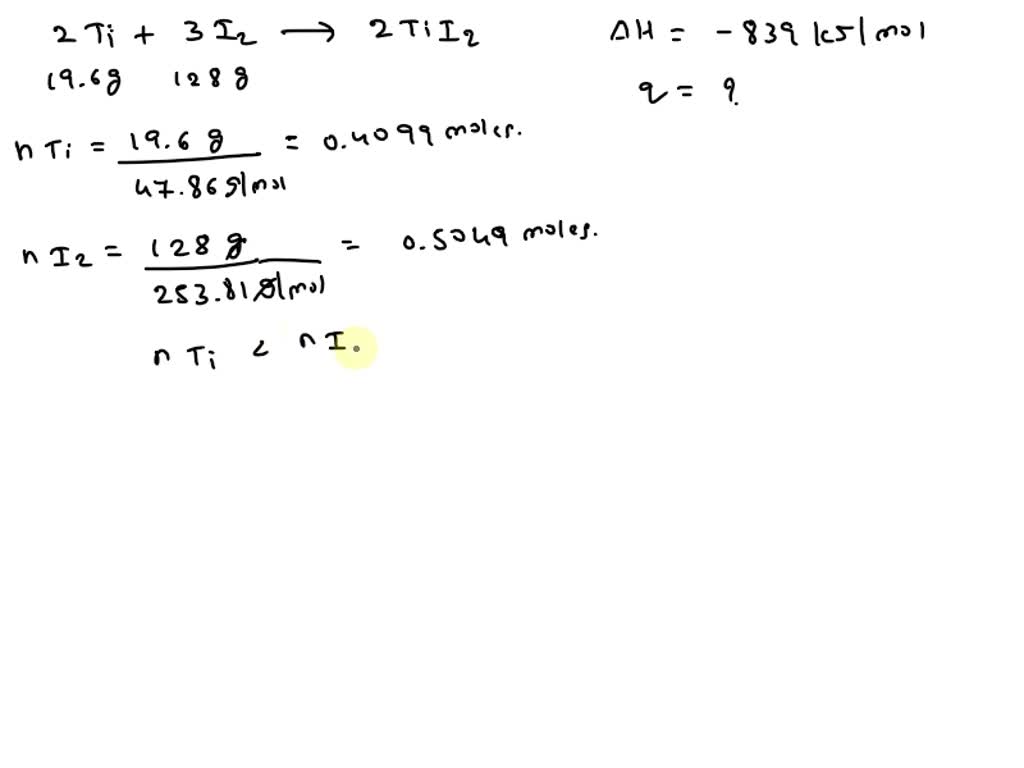 2 Ti + 3 I2 ⟶ 2 Ti I2 ΔH = - 839 kJ/mol
19.6g 128 g q = ?
n Ti = 19.6 g / 47.86 g/mol = 0.4099 moles.
n I2 = 128 g / 253.81 g/mol = 0.5049 moles.
n Ti < n I